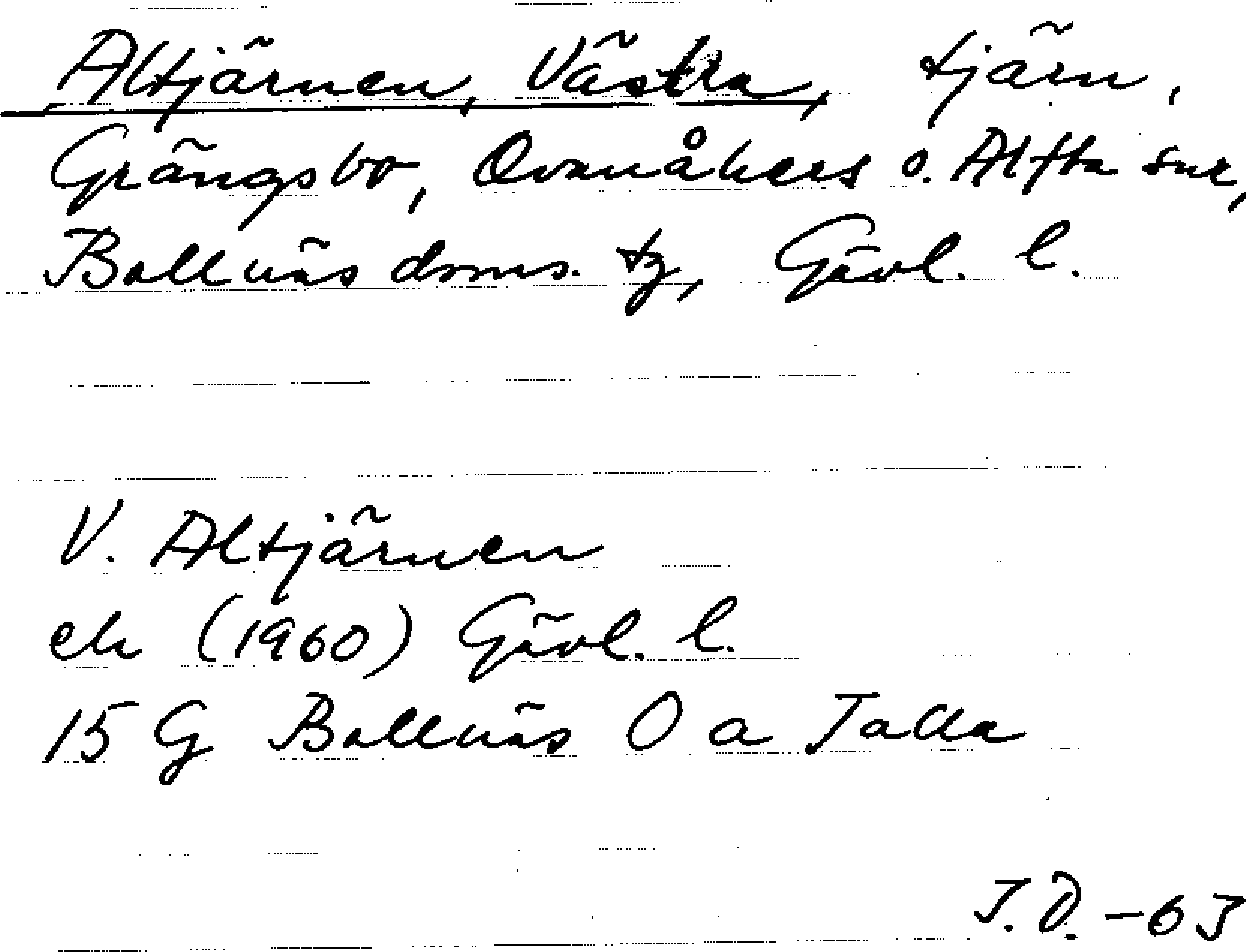 Altjärnen, Västra, tjärn,
Grängsbo, Ovanåkers o. Alfta snr,
Bollnäs doms. tg, Gävl. l.
V. Altjärnen
ek (1960) Gävl. l.
15 G Bollnäs O a Talla
J.Ö. -63